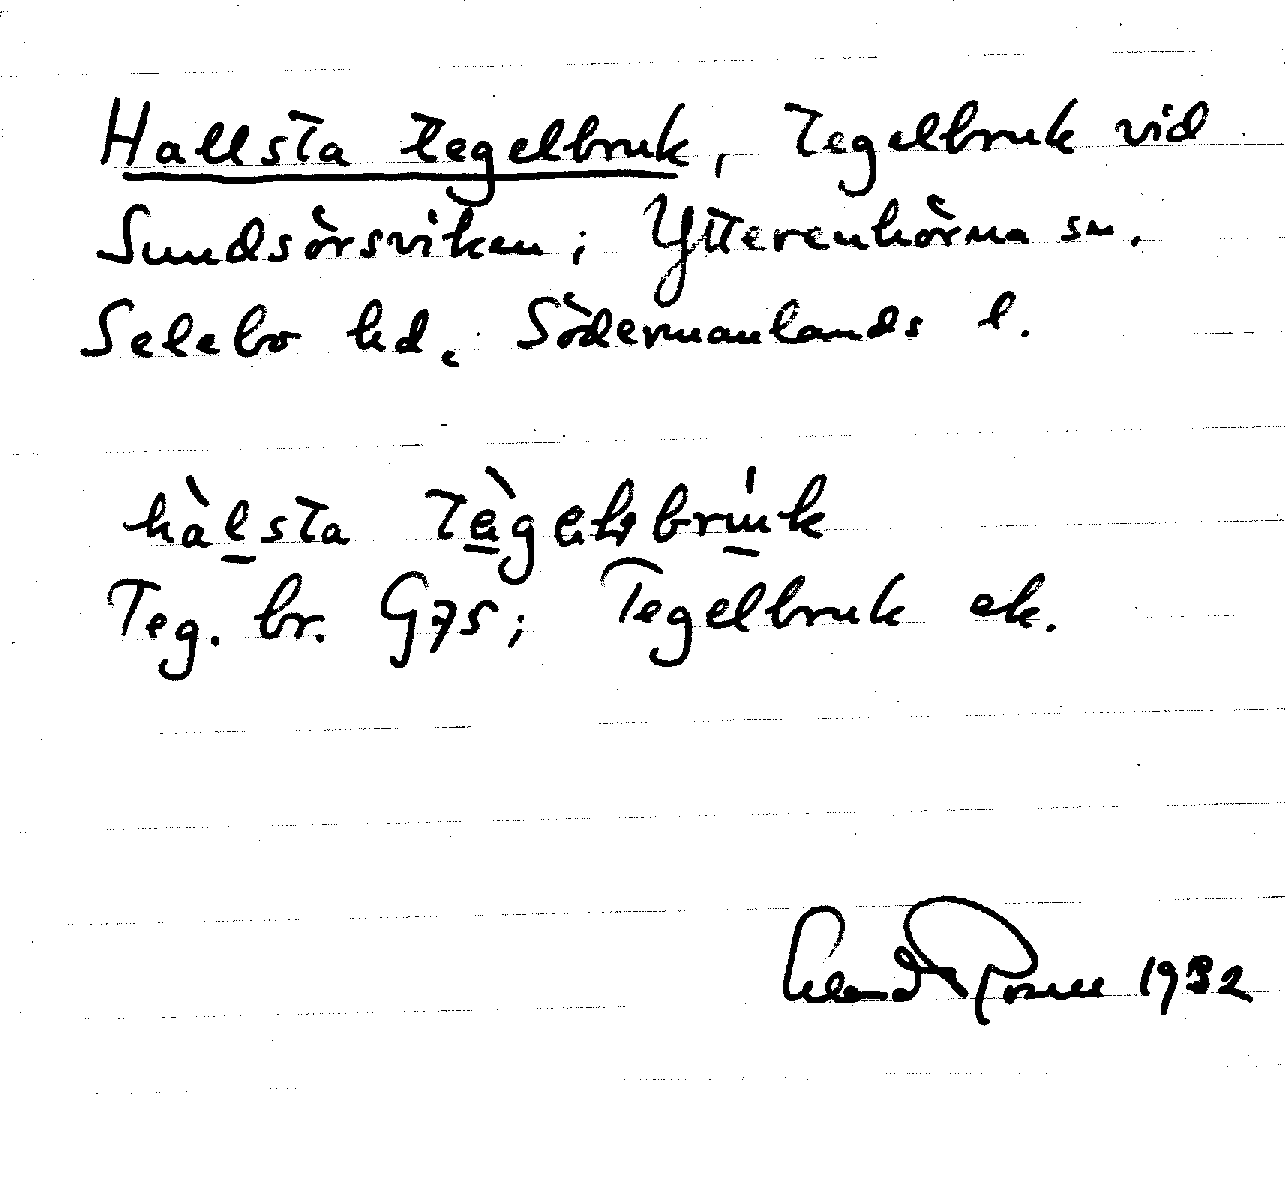 Hallsta tegelbruk, tegelbruk vid
Sundsörsviken; Ytterenhörna sn.
Selebo hd. Södermanlands l.
hàlsta
Teg. br. G75; Tegelbruk ek.
1932